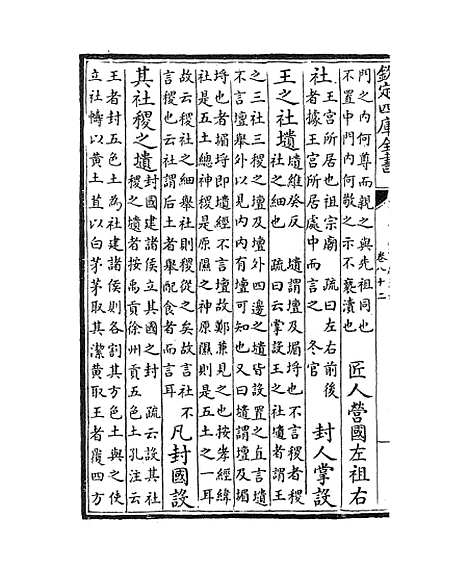 欽定四庫全書
卷八十二
門之内何尊而親之與先祖同也
不置中門内何敬之示不褻瀆也
匠人營國左祖右
社
王宮所居也祖宗廟　疏曰左右前後
者據王宮所居處中而言之　冬官
封人掌設
王之社壝
壝維癸反　壝謂壇及堳埒也不言稷者稷
社之細也　疏曰云掌設王之社壝者謂王
之三社三稷之壇及壇外四邊之壝皆設置之直言壝
不言壇舉外以見内内有壇可知也又曰壝謂壇及堳
埒也者堳埒即壝經不言壇故鄭兼見之也按孝經緯
社是五土總神稷是原隰之神原隰則是五土之一耳
故云稷社之細舉社則稷從之矣故言社不
言稷也云社謂后土者舉配食者而言耳
凡封國設
其社稷之壝
封國建諸侯立其國之封　疏云設其社
稷之壝者按禹貢徐州貢五色土孔注云
王者封五色土為社建諸侯則各割其方色土與之使
立社幬以黄土苴以白茅茅取其潔黄取王者覆四方